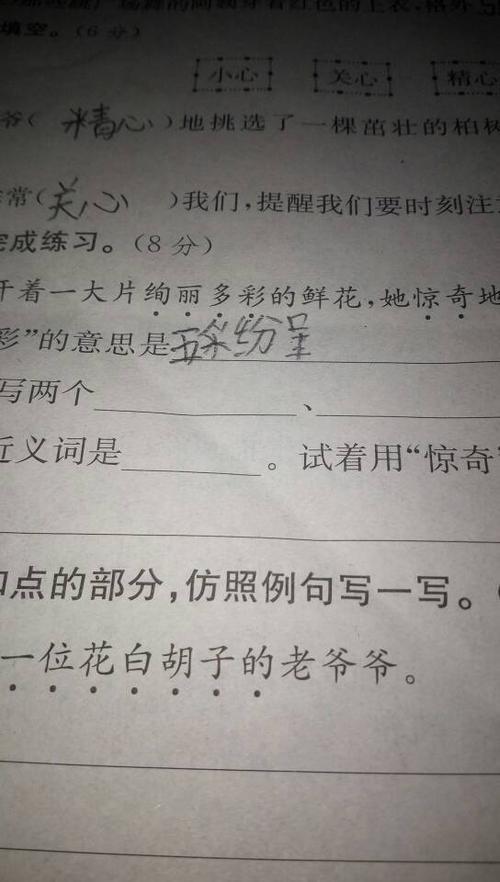 填空。(6分)
小心 关心 精心
爷( 精心 )地挑选了一棵茁壮的柏树
非常(关心 )我们,提醒我们要时刻注
完成练习。(8分)
开着一大片绚丽多彩的鲜花,她惊奇地
彩”的意思是五彩纷呈
写两个 、
近义词是 。试着用“惊奇”
加点的部分,仿照例句写一写。
一位花白胡子的老爷爷。